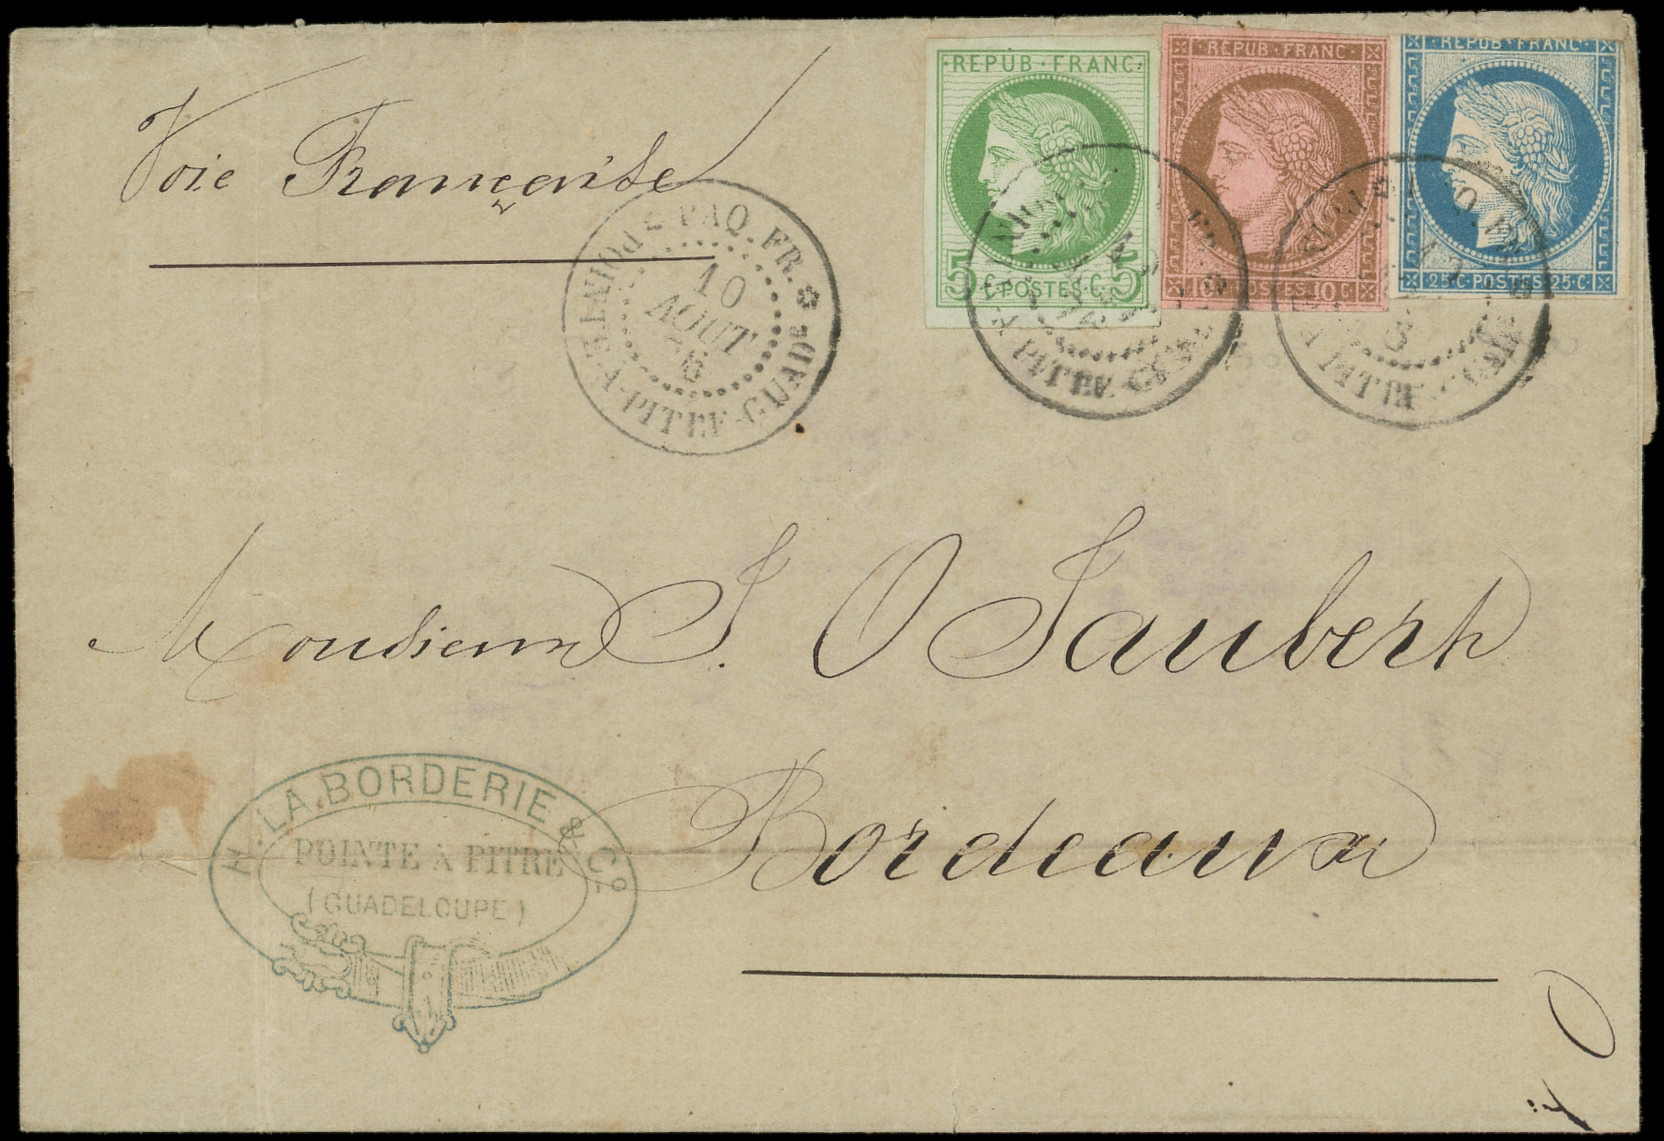 Voie Française
REPUB · FRANC
5 C · POSTES · C · 5
REPUB · FRANC
10 C · POSTES · 10 C
REPUB · FRANC
25 C · POSTES · 25 C
PAQ. FR.
POINTE-A-PITRE-GUADE
10
AOUT
76
Monsieur J. O Jaubert
Bordeaux
H. LA BORDERIE & Co
POINTE À PITRE
(GUADELOUPE)